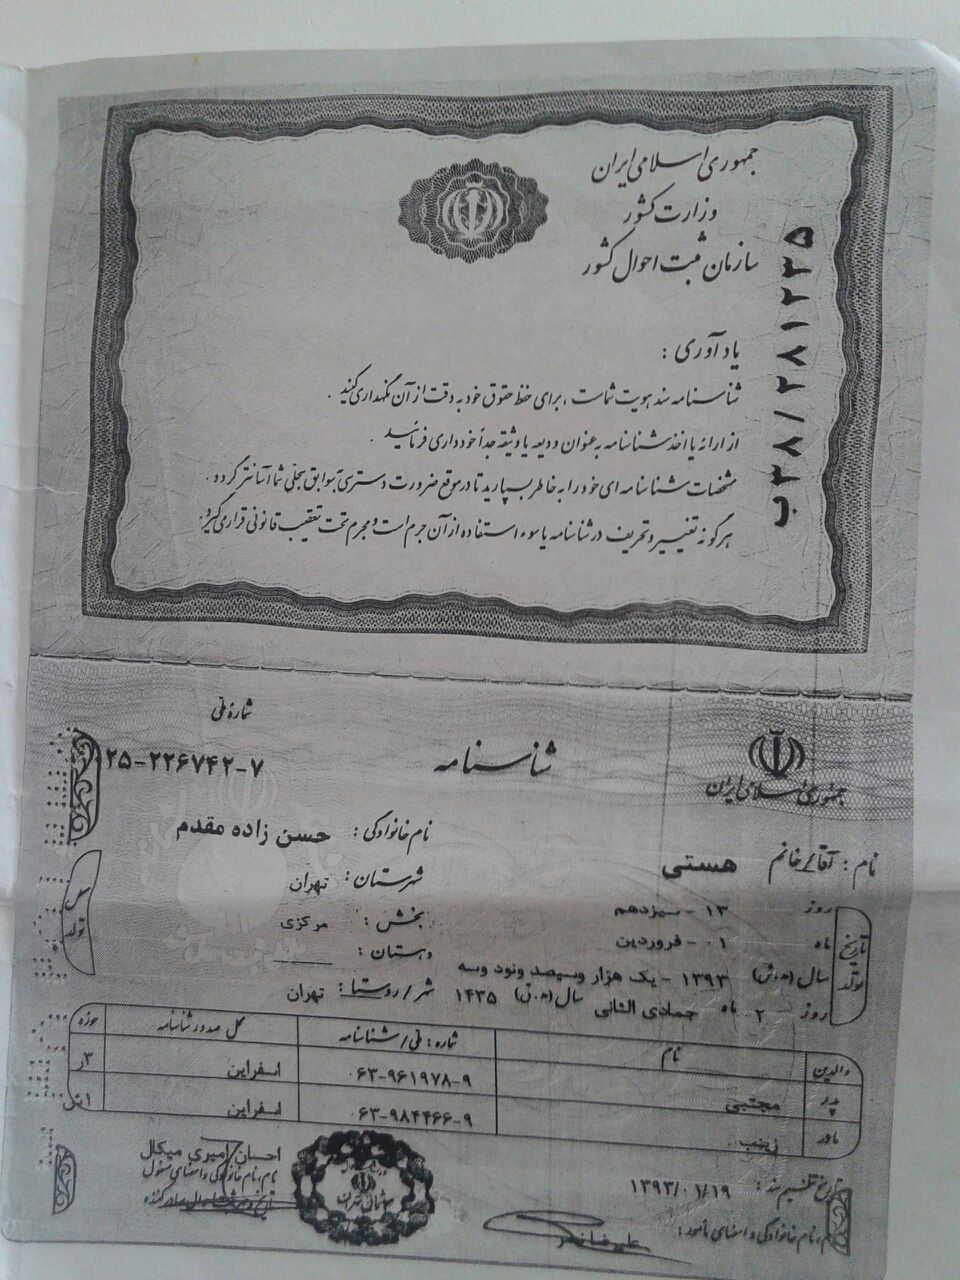 جمهوری اسلامی ایران
وزارت کشور
سازمان ثبت احوال کشور
ب۳۸/۲۸۱۲۳۵
یادآوری :
شناسنامه سند هویت شماست ، برای حفظ حقوق خود به دقت از آن نگهداری کنید .
از ارائه یا اخذ شناسنامه به عنوان ودیعه یا وثیقه جداً خودداری فرمائید .
مشخصات شناسنامه ای خود را به خاطر بسپارید تا در موقع ضرورت دسترسی به سوابق سجلی شما آسانتر گردد .
هرگونه تغییر و تحریف در شناسنامه یا سوء استفاده از آن جرم است و مجرم تحت تعقیب قانونی قرار می گیرد.
جمهوری اسلامی ایران
شناسنامه
شماره ملی
۲۵-۲۲۶۷۴۲-۷
نام : آقای/خانم هستی
نام خانوادگی : حسن زاده مقدم
تاریخ تولد
روز ۱۳ - سیزدهم
ماه ۰۱ - فروردین
سال (ه.ش) ۱۳۹۳ - یک هزار و سیصد و نود و سه
روز ۲ ماه جمادی الثانی سال (ه.ق) ۱۴۳۵
محل تولد
شهرستان : تهران
بخش : مرکزی
دهستان :
شهر/روستا : تهران
والدین نام شماره : ملی/شناسنامه محل صدور شناسنامه حوزه
پدر مجتبی ۰۶۳-۹۶۱۹۷۸-۹ اسفراین ۳ر
مادر زینب ۰۶۳-۹۸۴۴۶۶-۹ اسفراین
تاریخ تنظیم سند : ۱۳۹۳/۰۱/۱۹
نام، نام خانوادگی و امضای مأمور :
علیرضا
احسان امیری میکال
نام، نام خانوادگی و امضای مسئول
شمال تهران